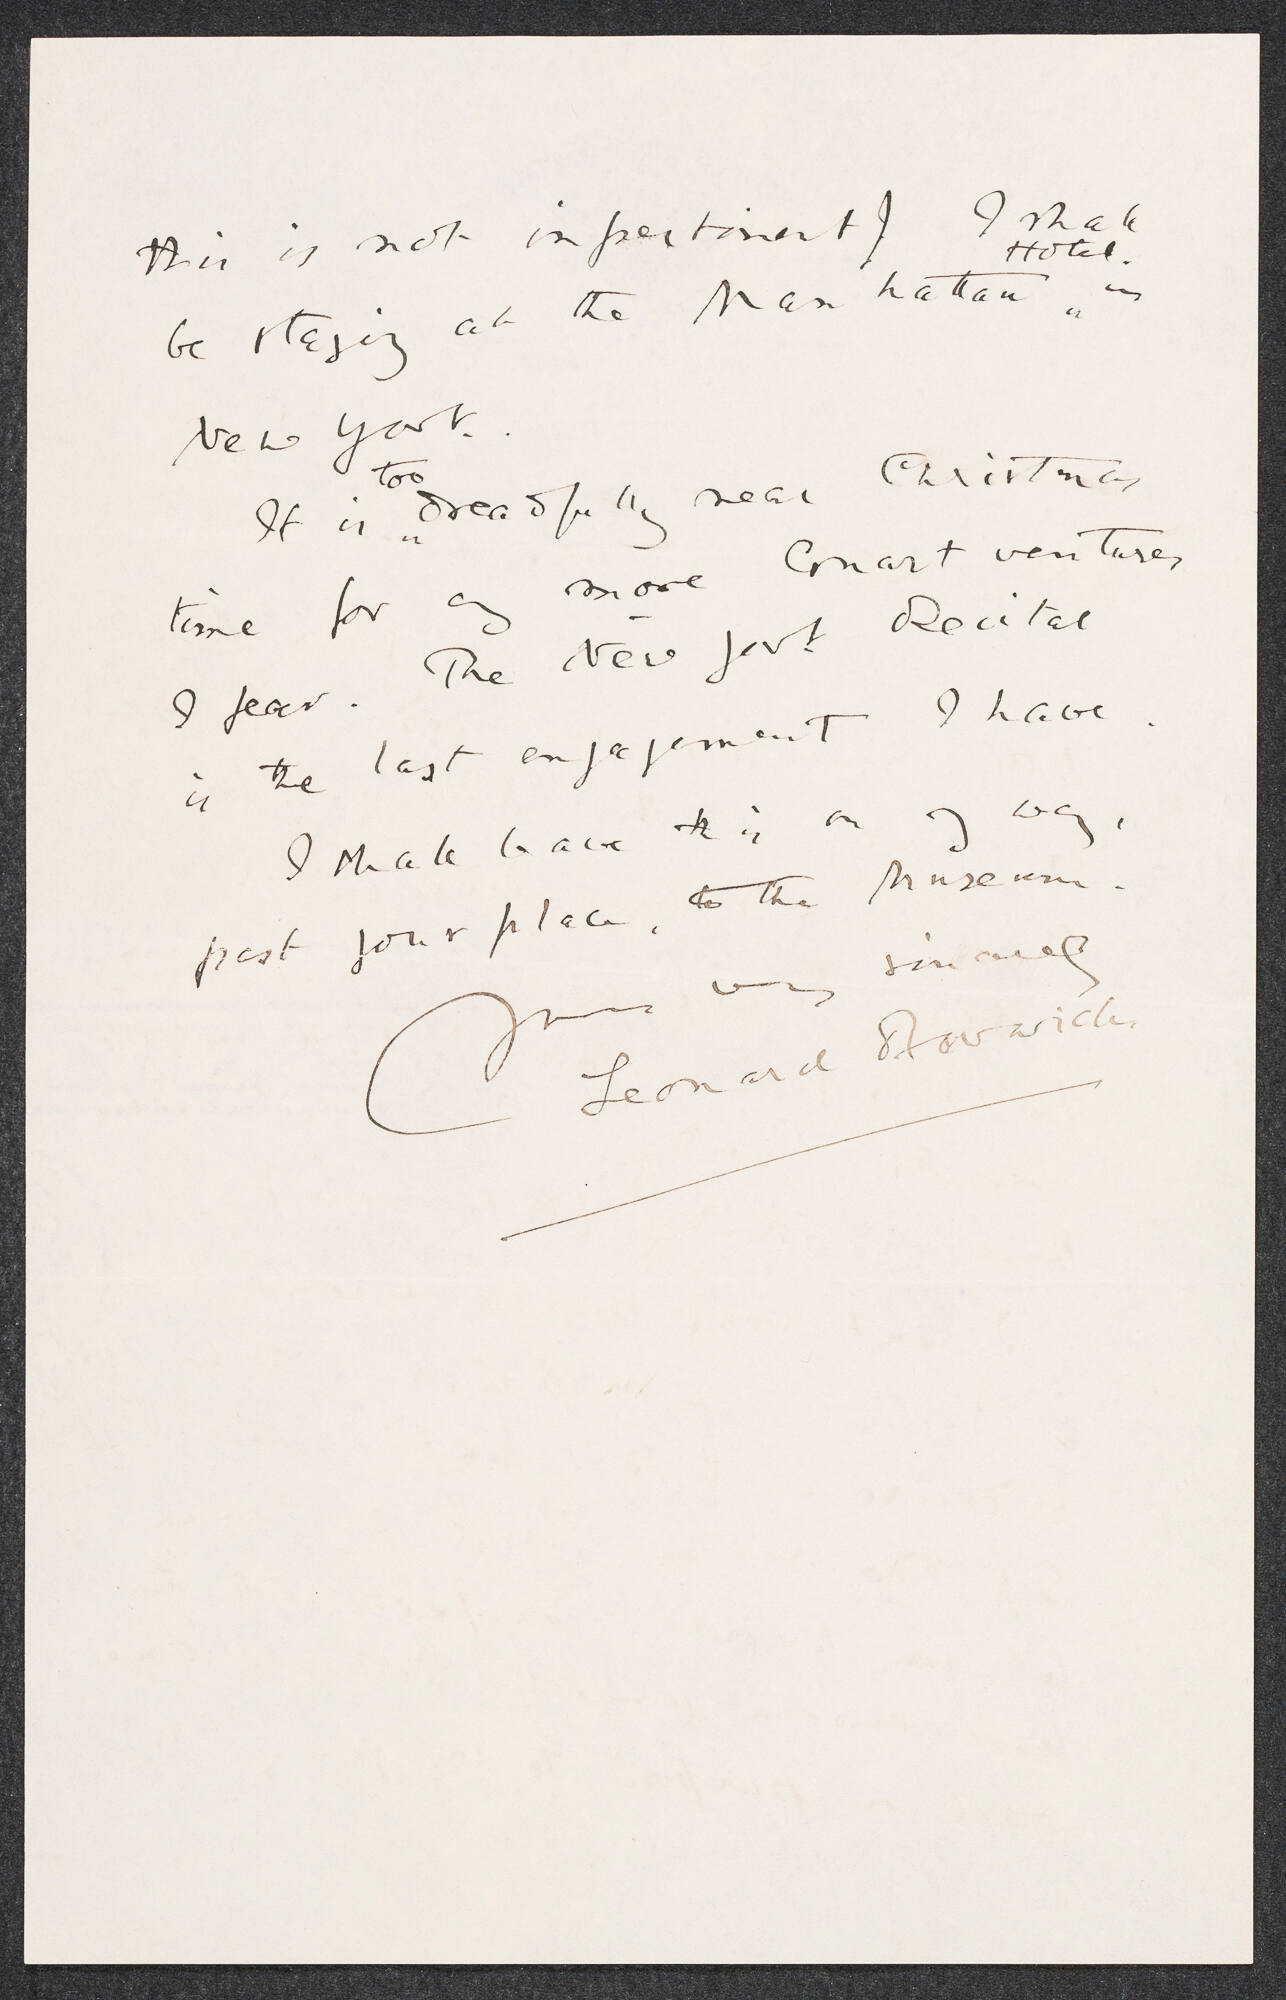 this is not impertinent) I shall
be staying at the Manhattan Hotel. in
New York.
It is too dreadfully near Christmas
time for any more Concert ventures
I fear. The New York Recital
is the last engagement I have.
I shall leave this on my way,
past your place, to the Museum.
Yours very sincerely
Leonard Borwick.